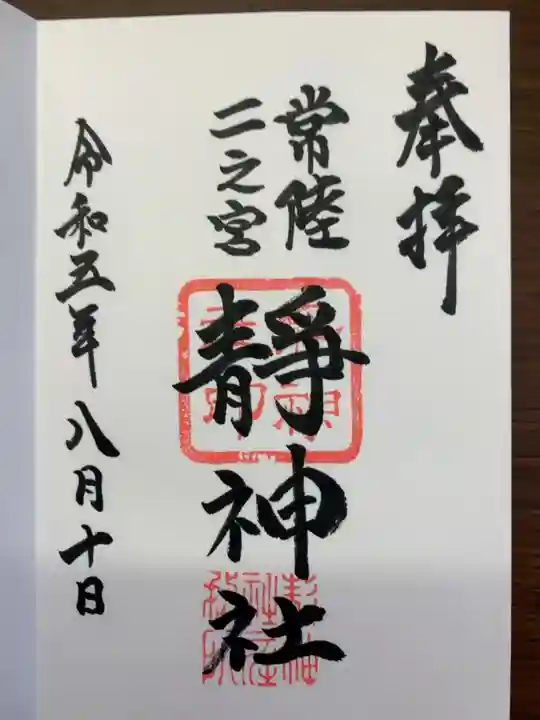 奉拝
常陸
二之宮
靜神社
令和五年八月十日